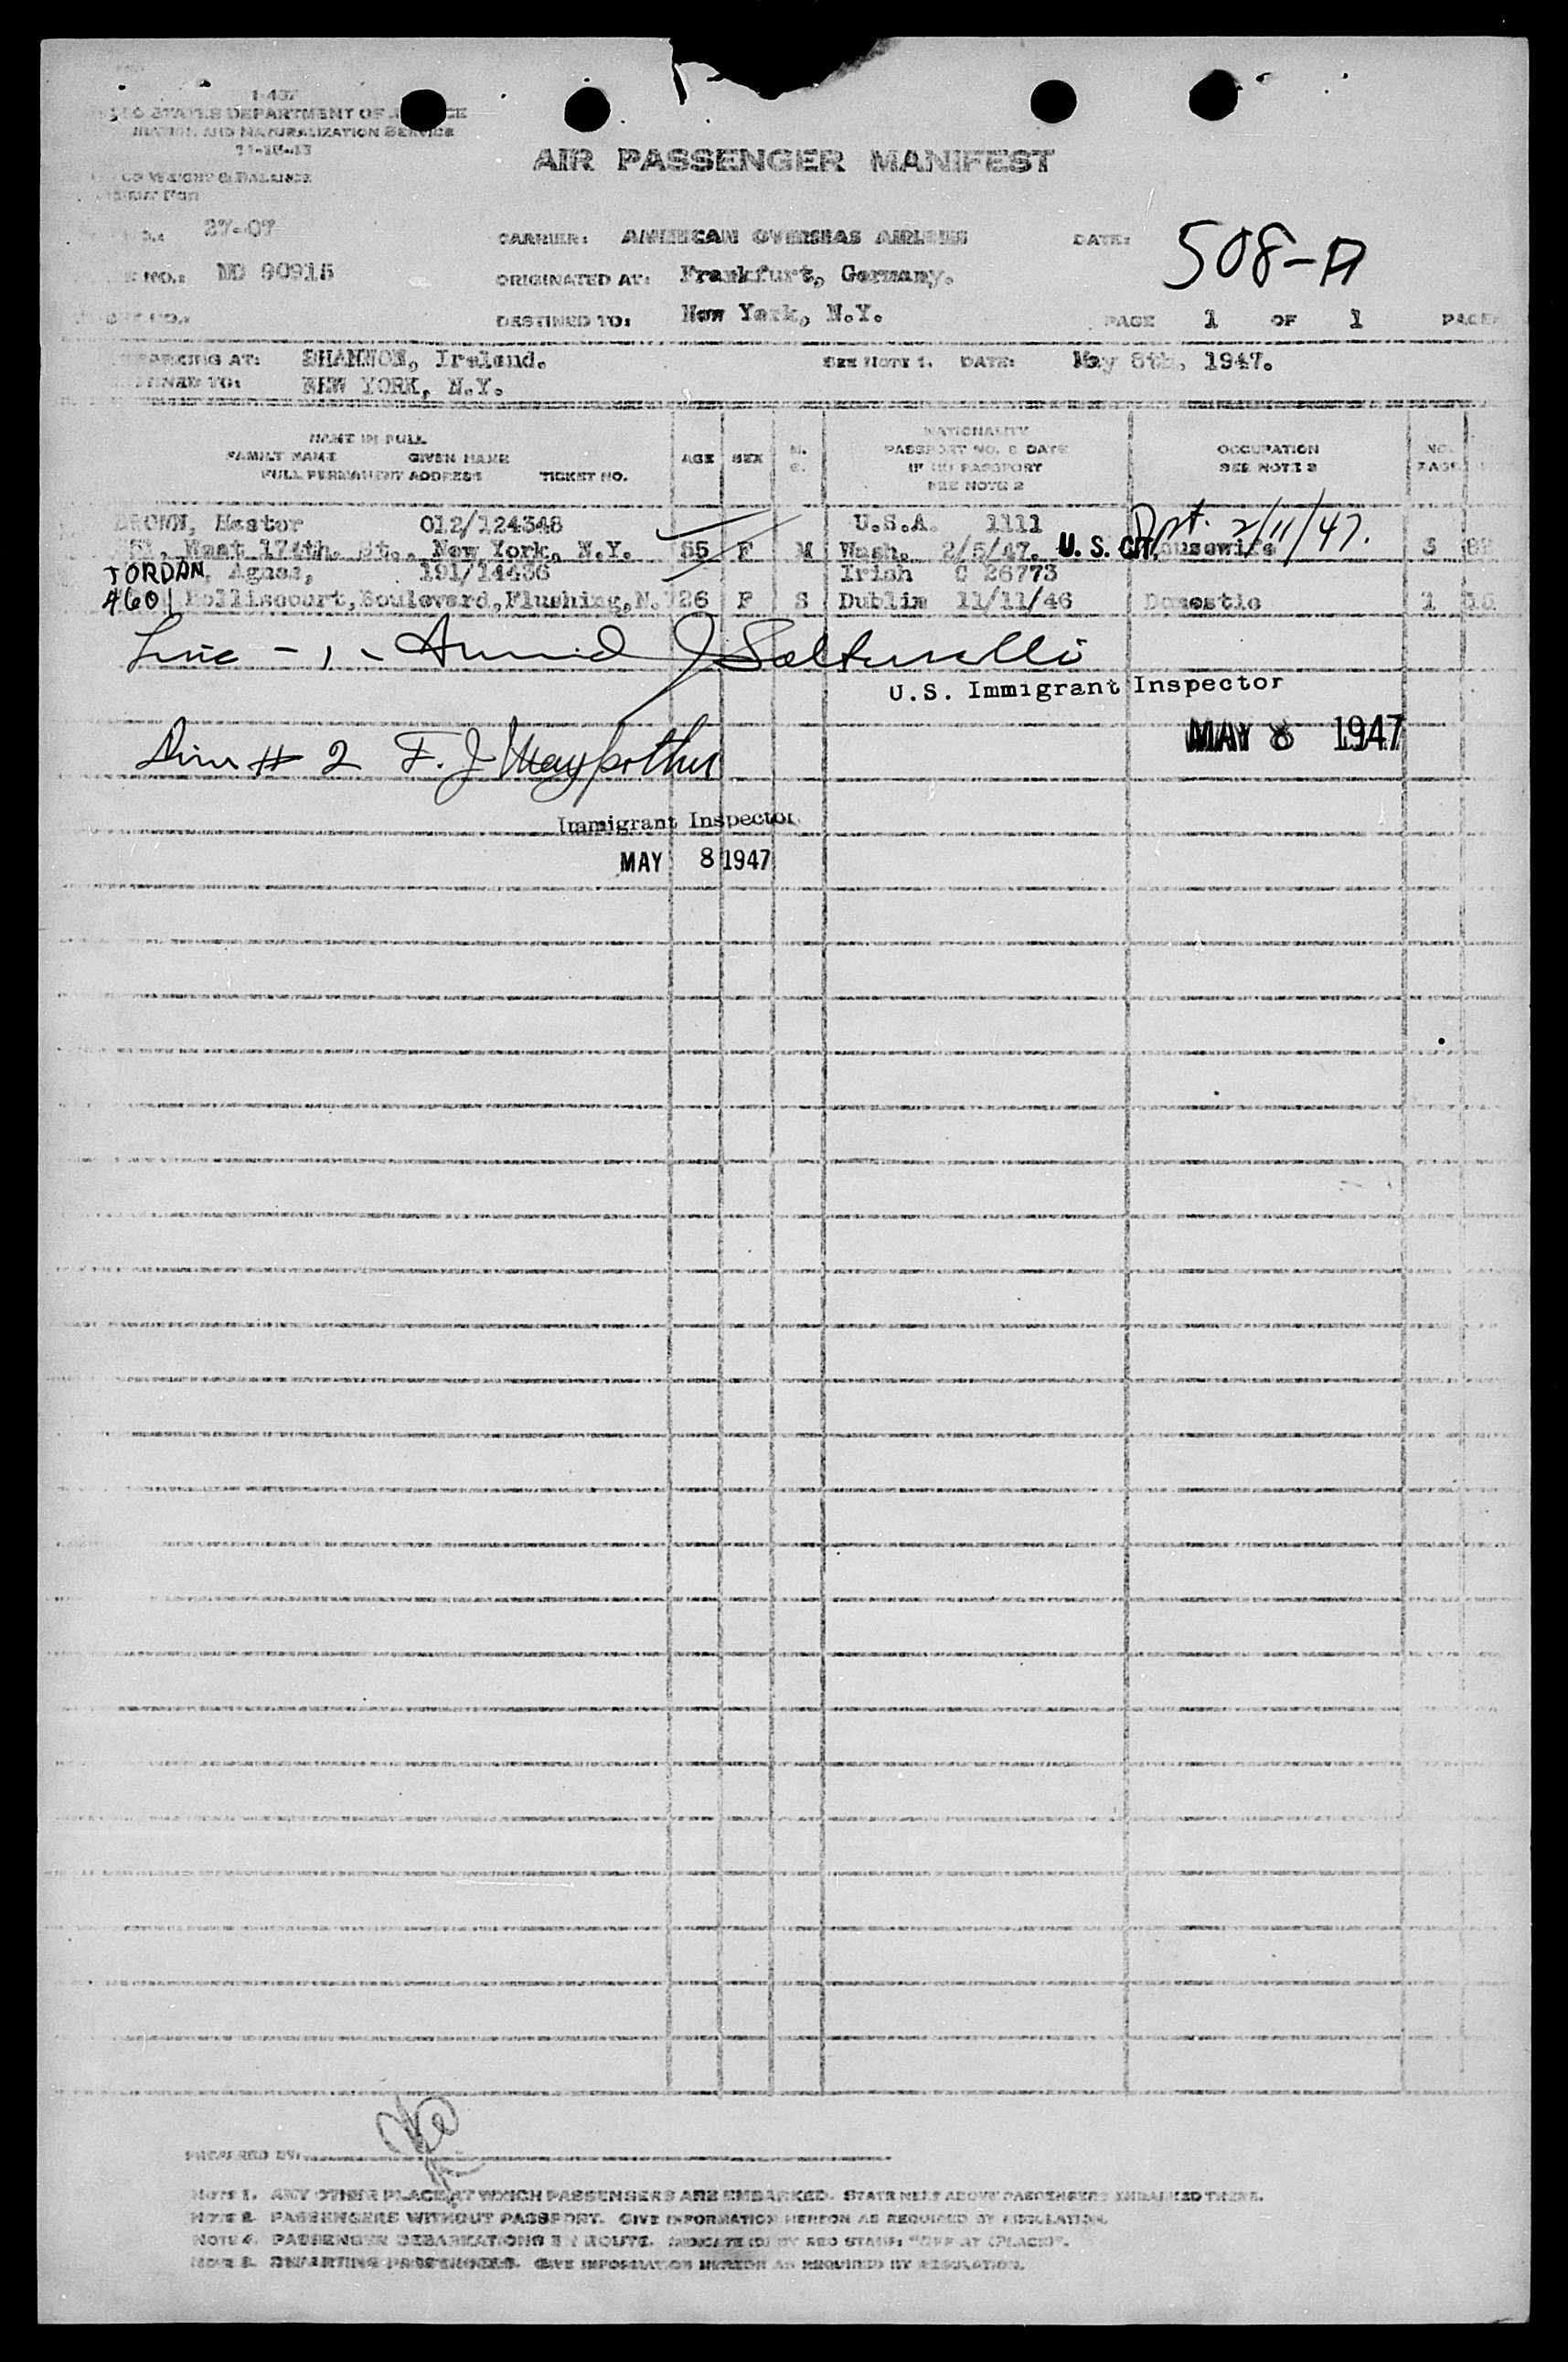 I-437
STATES DEPARTMENT OF
AND NATURALIZATION SERVICE
WEIGHT & BALANCE
AIR PASSENGER MANIFEST
27-07
CARRIER: AMERICAN OVERSEAS AIRLINES
DATE:
508-A
NO.: ND 90915
ORIGINATED AT: Frankfurt, Germany.
DESTINED TO: New York, N.Y.
PAGE 1 OF 1 PAGES
AT: SHANNON, Ireland.
SEE NOTE 1. DATE: May 8th, 1947.
TO: NEW YORK, N.Y.
NAME IN FULL
FAMILY NAME GIVEN NAME
FULL PERMANENT ADDRESS TICKET NO.
AGE SEX
NATIONALITY
PASSPORT NO. & DATE
IF NO PASSPORT
SEE NOTE 2
OCCUPATION
SEE NOTE 2
BROWN, Hester 012/124348 U.S.A. 1111 Dpt. 2/11/47.
West 174th. St., New York, N.Y. 55 F M Wash. 2/5/47. U. S. CIT. Housewife 3
JORDAN, Agnes, 191/14436 Irish C 26773
4601 Holliscourt, Boulevard, Flushing, N. 26 F S Dublin 11/11/46 Domestic 1
Line - 1 -
U.S. Immigrant Inspector
MAY 8 1947
# 2 F. J.
Immigrant Inspector
MAY 8 1947
PREPARED BY:
NOTE 1. ANY OTHER PLACE AT WHICH PASSENGERS ARE EMBARKED. STATE NEXT ABOVE PASSENGERS EMBARKED THERE.
NOTE 2. PASSENGERS WITHOUT PASSPORT. GIVE INFORMATION HEREON AS REQUIRED BY REGULATION.
NOTE 4. PASSENGER DEBARKATIONS EN ROUTE. INDICATE (D) BY RED STAMP: "OFF AT (PLACE)".
DEPARTING PASSENGERS. GIVE INFORMATION HEREON AS REQUIRED BY REGULATION.